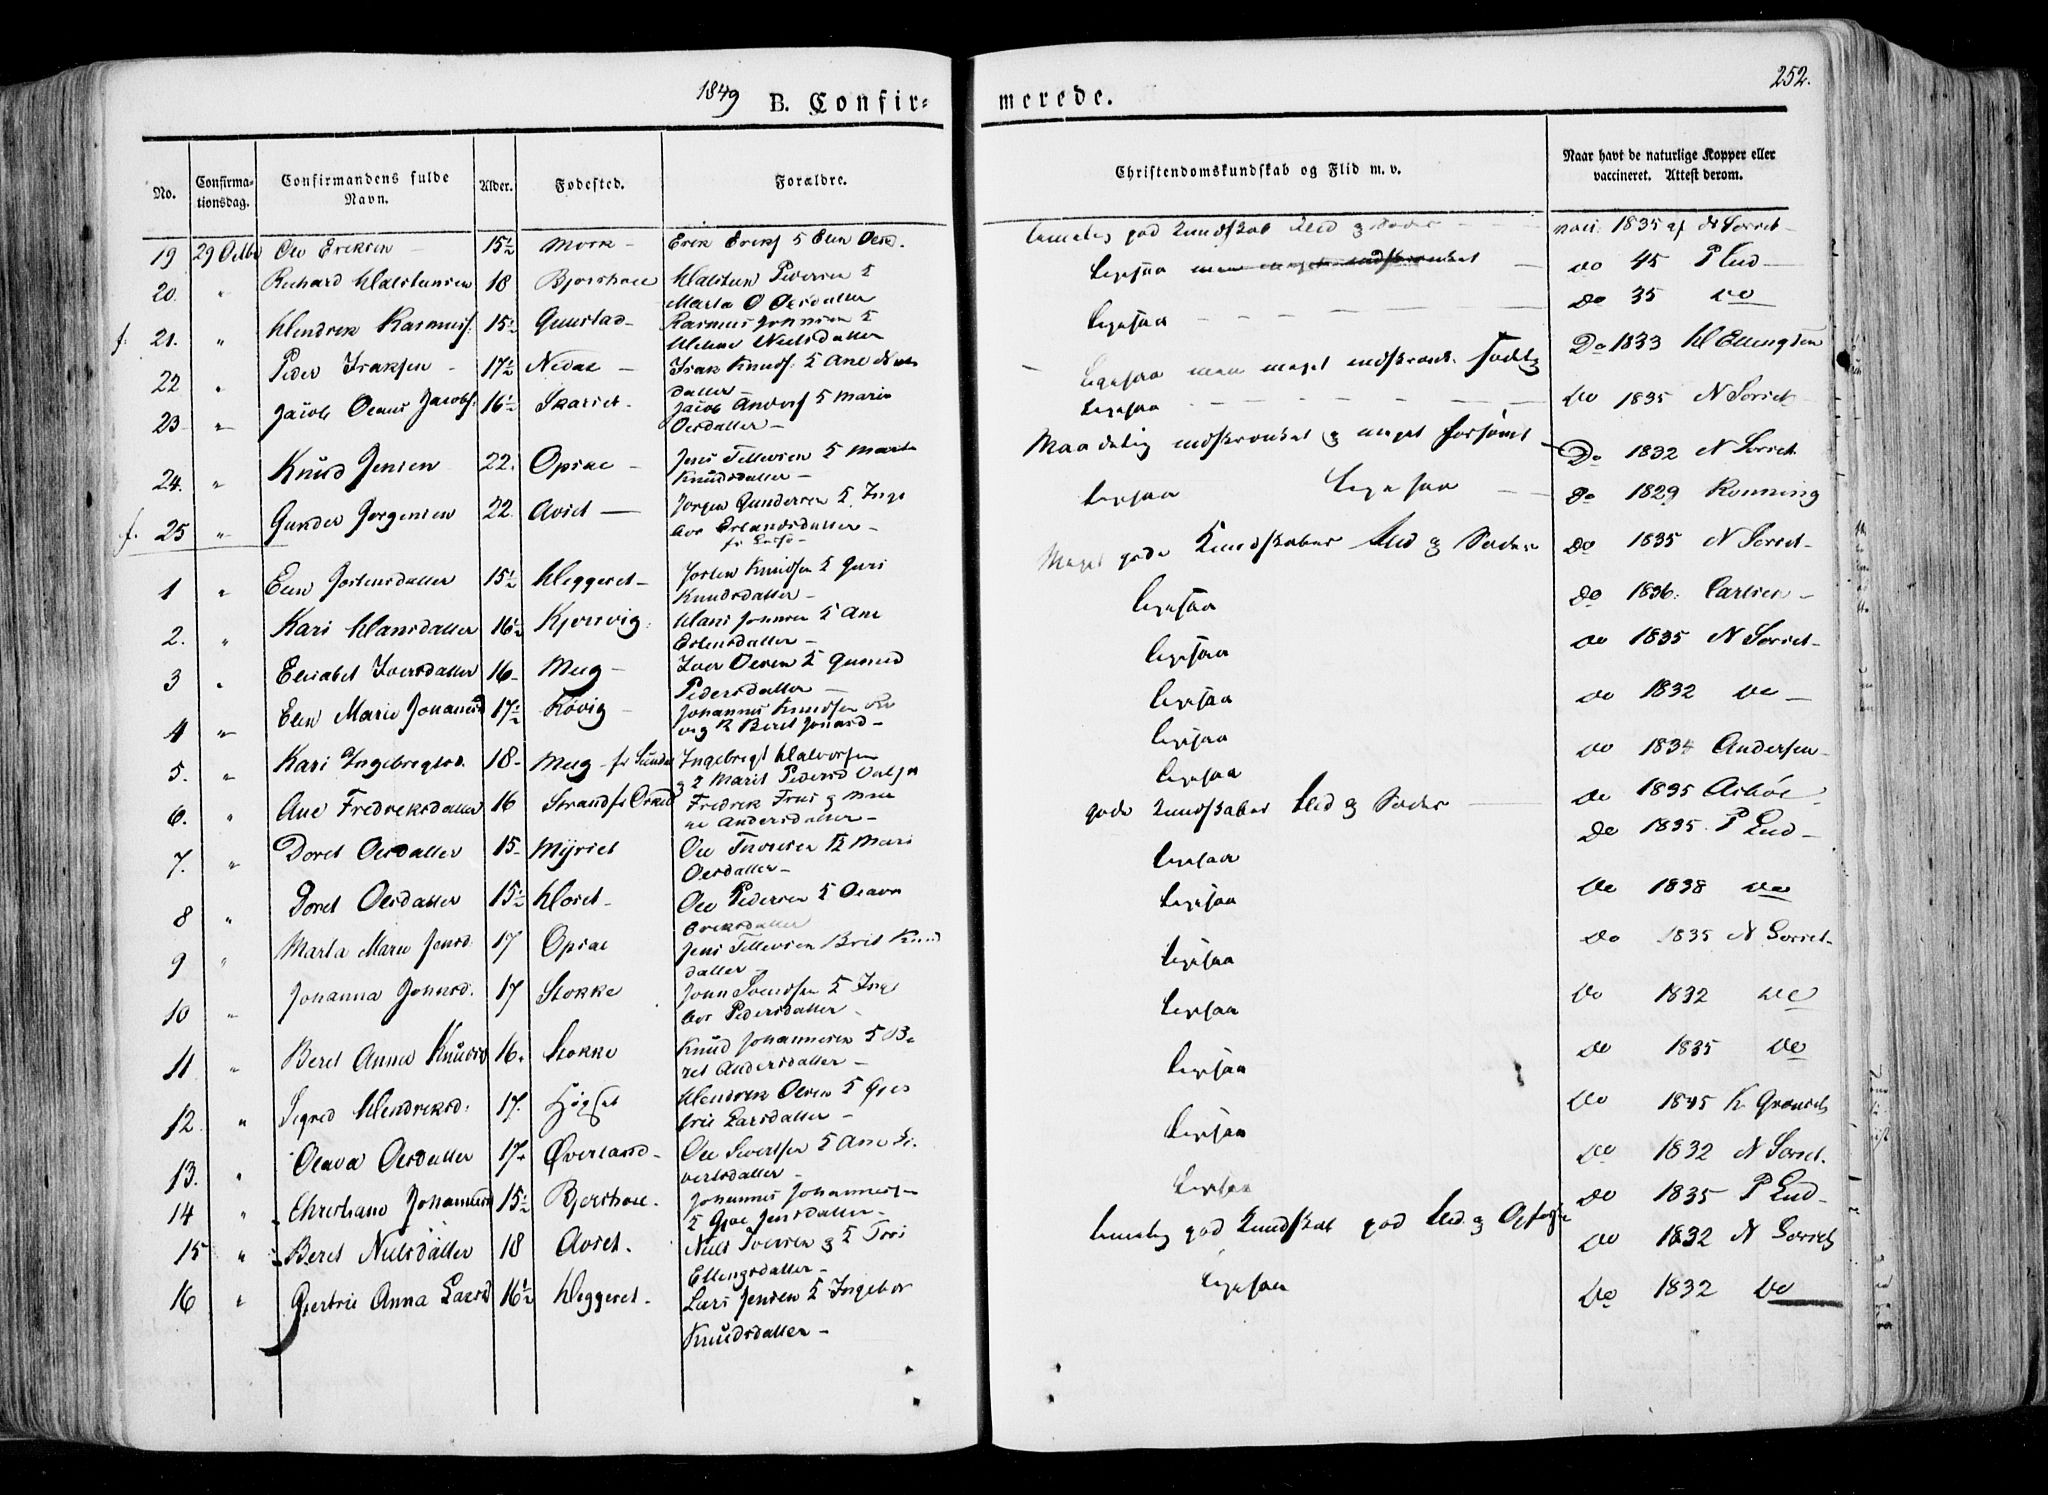 1849 B. Confir= merede. 252.
No. Confirma-tionsdag. Confirmandens fulde Navn. Alder. Fødested. Forældre. Christendomskundskab og Flid m. v. Naar havt de naturlige Kopper eller vaccineret. Attest derom.
19 29 Octbr Ole Eriksen 15½ Mork Erik Eriks Elen Olsd. temelig god Kundskab Flid og Sæder vacc. 1835 af N Sorset
20. " Richard Halstensen 18 Bjørshoel Halsten Pedersen Marta O Olesdatter Ligesaa do 45 P Eid
f. 21. " Hendrik Rasmus. 15½ Gunstad Rasmus Johnsen Nielsdatter Ligesaa Do 35 do
22 " Peder Iraksen 17½ Nedal Irak Knuds. Ane datter Ligesaa men meget indskrænk. Do 1833 H Ellingsen
23 " Jacob Olaus Jacobs. 16½ Skaret Jacob Anders Marie Olesdatter Ligesaa do 1835 N Sorset
24. " Knud Jensen 22. Opsal Jens Tellevsen Marit Knudsdatter Maadelig indskrænket og meget forsømt Do 1832 N Sorset
f. 25 " Gunder Jørgensen 22. Avset Jørgen Gundersen Inge bor Erlandsdatter Ligesaa Ligesaa do 1829 Rønning
1 " Elen Jostensdatter 15½ Kleggeset Josten Knudsen Guri Knudsdatter Meget gode Kundskaber Flid og Sæder do 1835 N Sorset
2. " Kari Hansdatter 16½ Kjørsvig Hans Johnsen Ane Estensdatter Ligesaa do 1836. Carlsen
3 " Elisabet Iversdatter 16 Meeg Iver Olsen Gunild Pedersdatter Ligesaa do 1835 N Sorset
4 " Elen Marie Johannesd 17½ Røvig Johannes Knudsen Rø vig Beret Jonasd Ligesaa do 1832 do
5. " Kari Ingebregtsd. 18 Meeg Ingebregt Halvorsen Marit Pedersd Ligesaa do 1834 Andersen
6. " Ane Fredreksdatter 16 Strand Fredrik Andersdatter Ligesaa do 1835 Asbøl
7. " Doret Olesdatter 15 Myrset Ole Mari Olesdatter gode Kundskaber Flid og Sæder do 1835. P Eid
8 " Doret Olesdatter 15½ Ole Pedersen Olava Eriksdatter Ligesaa do 1838 do
9 " Marta Marie Jensd. 17 Opsal Jens Tellevsen Brit Knud datter Ligesaa do 1835 N Sorset
10 " Johanna Johnsd. 17 Stokke John Svendsen Inge bor Pedersdatter Ligesaa do 1832 do
11 " Beret Anne Knudsd 16. Stokke Knud Johannesen Be ret Andersdatter Ligesaa do 1835 do
12. " Sigred Hendreksd. 17. Høgset Hendrik Olsen Gjer trie Larsdatter Ligesaa do 1845 K Grønset
13. " Olava Olesdatter 17 Øverland Ole Sivertsen Ane Si vertsdatter Ligesaa do 1832 N Sorset.
14 " Christiane Johannesd 15½ Bjørshoel. Johannes Johannesen Jensdatter Ligesaa do 1835 P Eid
15 " Beret Nielsdatter 18 Avset. Niels Iversen og Ellingsdatter temelig god Kundskab god Flid og Opførsel do 1832 N Sorset
16 " Gjertrie Anna Larsd 16½ Kleggeset. Lars Jensen Ingebor Knudsdatter Ligesaa Do 1832 do